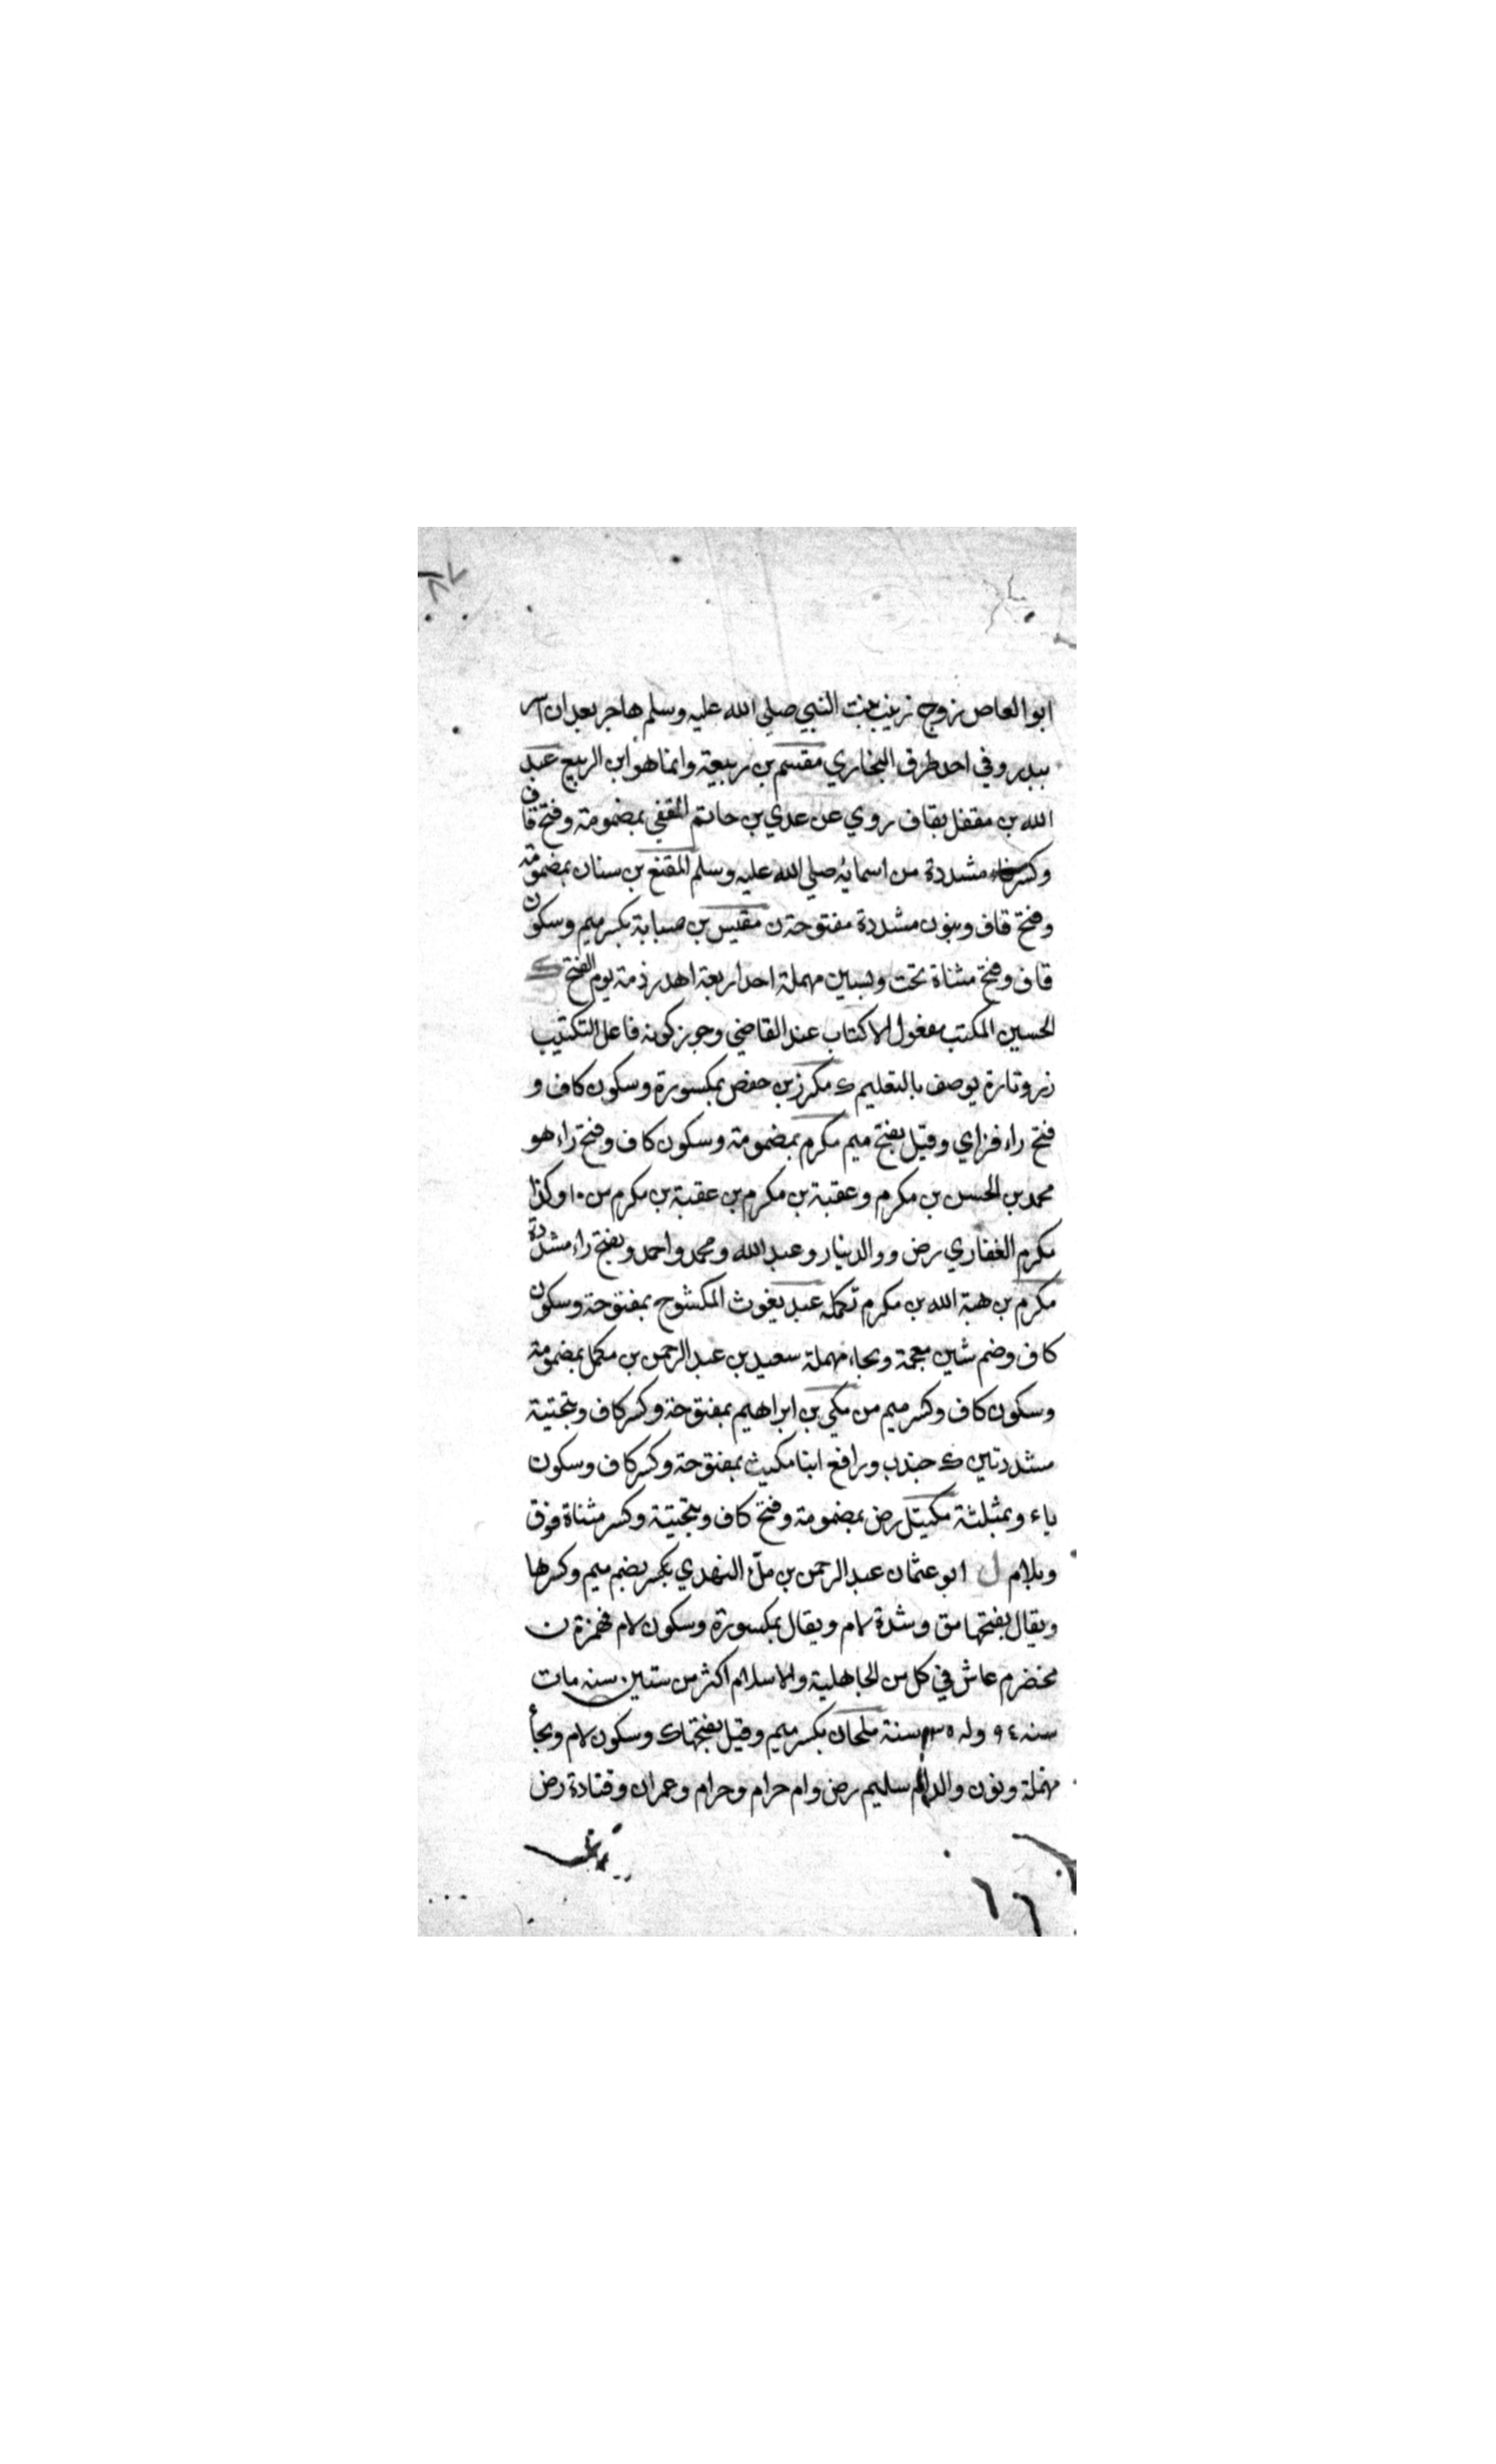 ابو العاص زوج زينب بنت النبي صلي الله عليه وسلم هاجر بعد ان اسر
ببدر وفي احد طرق البخاري مقسم بن ربيعة وانما هو ابن الربيع عبد
الله بن مقفل بقاف روي عن عدي بن حاتم المقفي بمضمومة وفتح قاف
وكسر فاء مشددة من اسمائه صلي الله عليه وسلم المقنع بن سنان بمضمومة
وفتح قاف وبنون مشددة مفتوحة ن مقيس بن صبابة بكسر ميم وسكون
قاف وفتح مثناة تحت وبسين مهملة احد اربعة اهدر ذمة يوم الفتح ك
الحسين المكتب مفعول الاكتاب عند القاضي وجوز كونه فاعل التكتيب
زر وتارة يوصف بالتعليم ك مكرز بن حفص بمكسورة وسكون كاف و
فتح راء فزاي وقيل بفتح ميم مكرم بمضمومة وسكون كاف وفتح راء هو
محمد بن الحسن بن مكرم وعقبة بن مكرم بن عقبة بن مكرم من ١٠ وكذا
مكرم الغفاري رض ووالد بنار وعبد الله ومحمد واحمد وبفتح راء مشددة
مكرم بن هبة الله بن مكرم تكمله عبد يغوث المكشوح بمفتوحة وسكون
كاف وضم شين معجمة وبحاء مهملة سعيد بن عبد الرحمن بن مكمل بمضمومة
وسكون كاف وكسر ميم من مكي بن ابراهيم بمفتوحة وكسر كاف وبتحتية
مشددتين ك جندب ورافع ابنا مكيث بمفتوحة وكسر كاف وسكون
ياء وبمثلثة مكيتل رض بمضمومة وفتح كاف وبتحتية وكسر مثناة فوق
وبلام ل ابو عثمان عبد الرحمن بن ملّ النهدي بكسر بضم ميم وكسرها
ويقال بفتحها مق وشدة لام ويقال بمكسورة وسكون لام فهمزة ن
مخضرم عاش في كل من الجاهلية والاسلام اكثر من ستين سنه مات
سنه ٩٤ وله ١٣٥ سنة ملحان بكسر ميم وقيل بفتحها ك وسكون لام وبحاء
مهملة ونون والد ام سليم رض وام حرام وحرام وعمران وقتادة رض